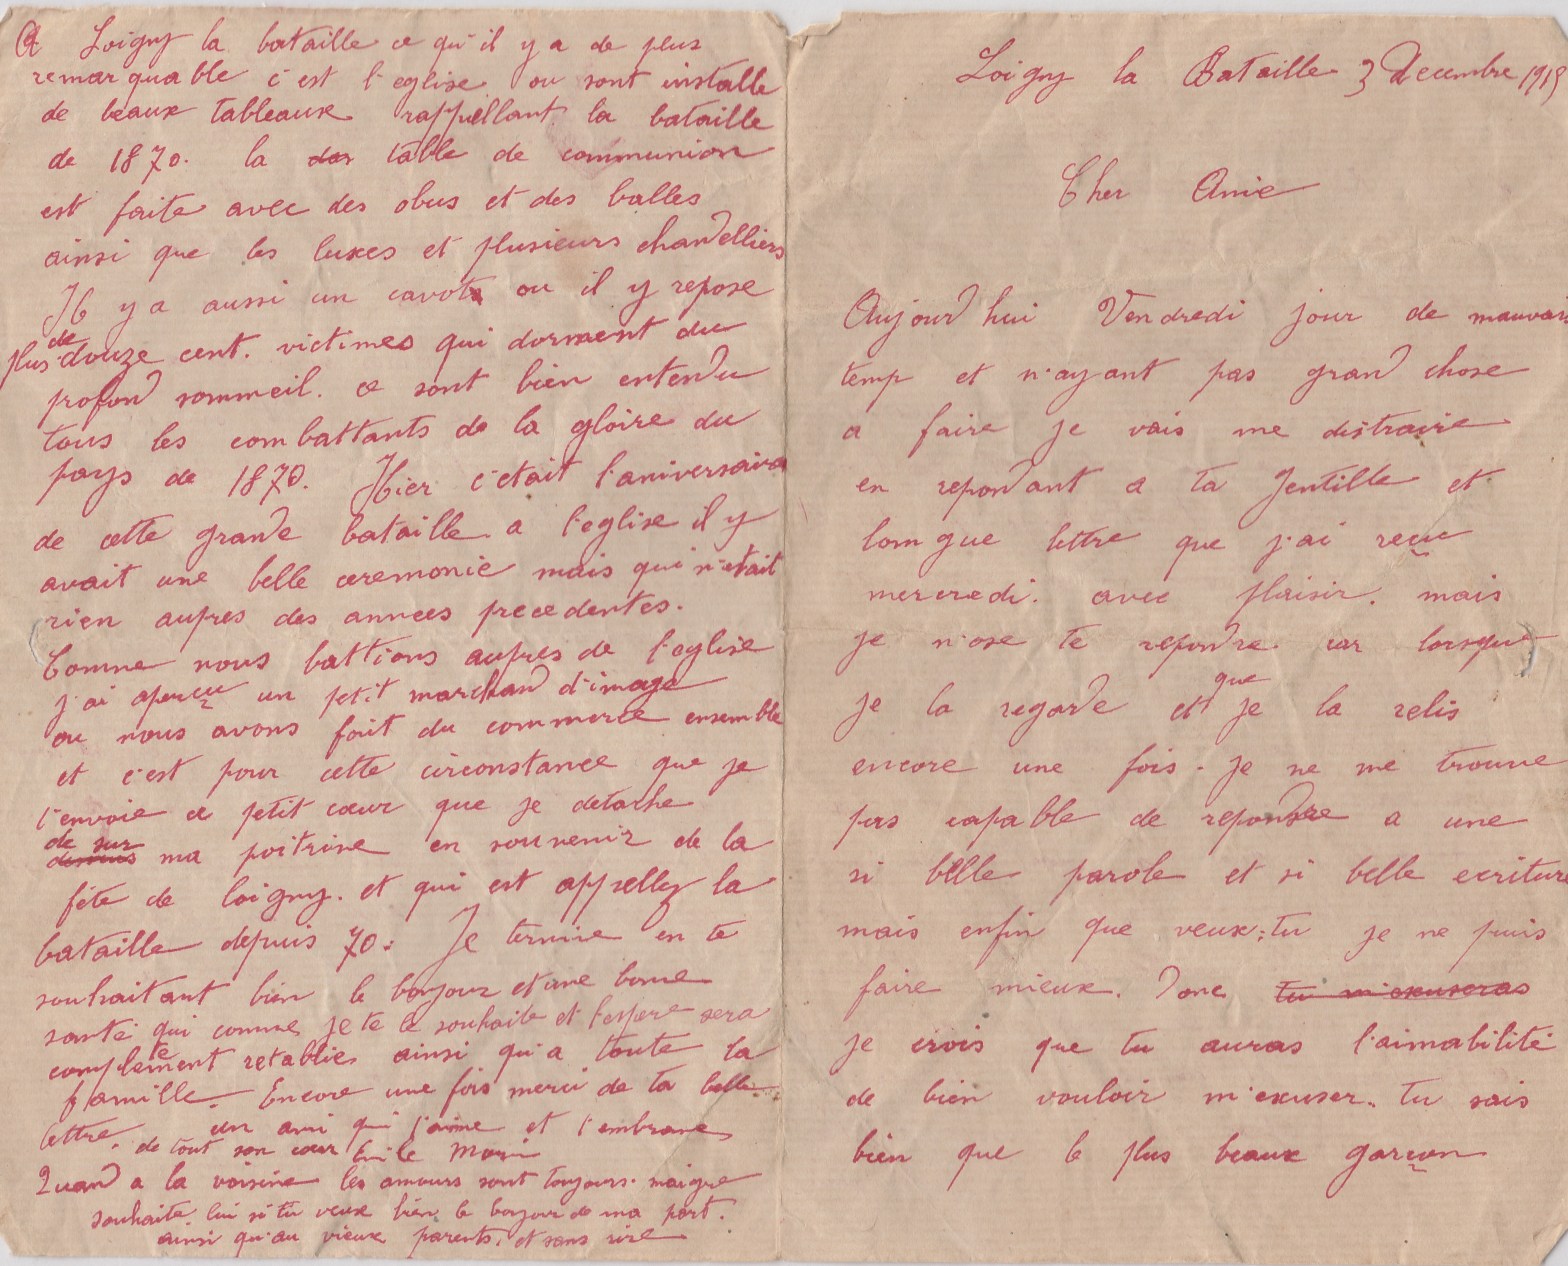 Loigny la Bataille 3 Decembre 1915
Cher Amie
Aujourd'hui Vendredi jour de mauvais
temp et n'ayant pas grand chose
a faire je vais me distraire
en repondant a ta gentille et
longue lettre que j'ai reçue
mercredi. avec plaisir. mais
je n'ose te repondre car lorsque
je la regarde et que je la relis
encore une fois. je ne me trouve
pas capable de repondre a une
si belle parole et si belle ecriture
mais enfin que veux-tu je ne puis
faire mieux. Donc tu m'excuseras
je crois que tu auras l'aimabilité
de bien vouloir m'excuser. tu sais
bien que le plus beaux garçon
A Loigny la bataille ce qu'il y a de plus
remarquable c'est l'eglise ou sont installe
de beaux tableaux rappellant la bataille
de 1870. la table de communion
est faite avec des obus et des balles
ainsi que les luxes et plusieurs chandelliers
Il y a aussi un cavot ou il y repose
plus de douze cent. victimes qui dorment du
profond sommeil. ce sont bien entendu
tous les combattants de la gloire du
pays de 1870. Hier c'etait l'aniversaire
de cette grande bataille a l'eglise il y
avait une belle ceremonie mais qui n'etait
rien aupres des annees precedentes.
Comme nous battions aupres de l'eglise
j'ai aperçu un petit marchand d'image
ou nous avons fait du commerce ensemble
et c'est pour cette circonstance que je
t'envoie ce petit cœur que je detache
de sur ma poitrine en souvenir de la
fête de Loigny. et qui est appelley la
bataille depuis 70. Je termine en te
souhaitant bien le bonjour et une bonne
santé qui comme je te le souhaite et l'espere sera
completement retablie ainsi qu'a toute la
famille. Encore une fois merci de ta belle
lettre. un ami qui t'aime et t'embrasse
de tout son cœur Emile
Quand a la voisine les amours sont toujours. maigre
souhaite lui si tu veux bien le bonjour de ma part.
ainsi qu'au vieux parents. et sans rire